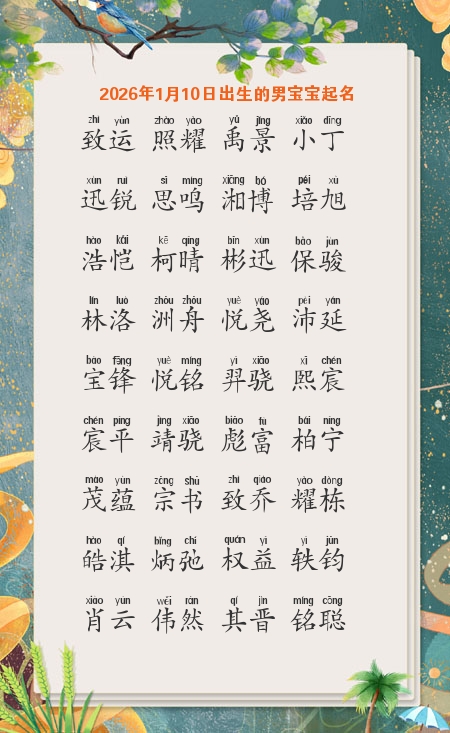 2026年1月10日出生的男宝宝起名
zhì yùn zhào yào yǔ jǐng xiǎo dīng
致运 照耀 禹景 小丁
xùn ruì sī míng xiāng bó péi xù
迅锐 思鸣 湘博 培旭
hào kǎi kē qíng bīn xùn bǎo jùn
浩恺 柯晴 彬迅 保骏
lín luò zhōu zhōu yuè yáo pèi yán
林洛 洲舟 悦尧 沛延
bǎo fēng yuè míng yì xiāo xī chén
宝锋 悦铭 羿骁 熙宸
chén píng jìng xiāo biāo fù bǎi níng
宸平 靖骁 彪富 柏宁
mào yùn zōng shū zhì qiáo yào dòng
茂蕴 宗书 致乔 耀栋
hào qí bǐng chí quán yì yì jūn
皓淇 炳弛 权益 轶钧
xiào yún wěi rán qí jìn míng cōng
肖云 伟然 其晋 铭聪